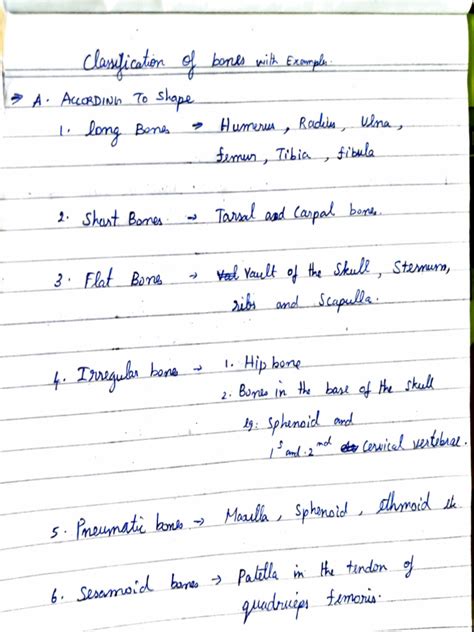 Classification of bones with Example.
→ A. According To Shape
1. long Bones → Humerus, Radius, Ulna,
femur, Tibia, fibula
2. Short Bones → Tarsal and Carpal bones.
3. Flat Bones → Vault of the Skull, Sternum,
ribs and Scapulla.
4. Irregular bone → 1. Hip bone
2. Bones in the base of the skull
eg: Sphenoid and
1st and 2nd Cervical vertebrae.
5. Pneumatic bones → Maxilla, Sphenoid, ethmoid etc.
6. Sesamoid bones → Patella in the tendon of
quadriceps femoris.